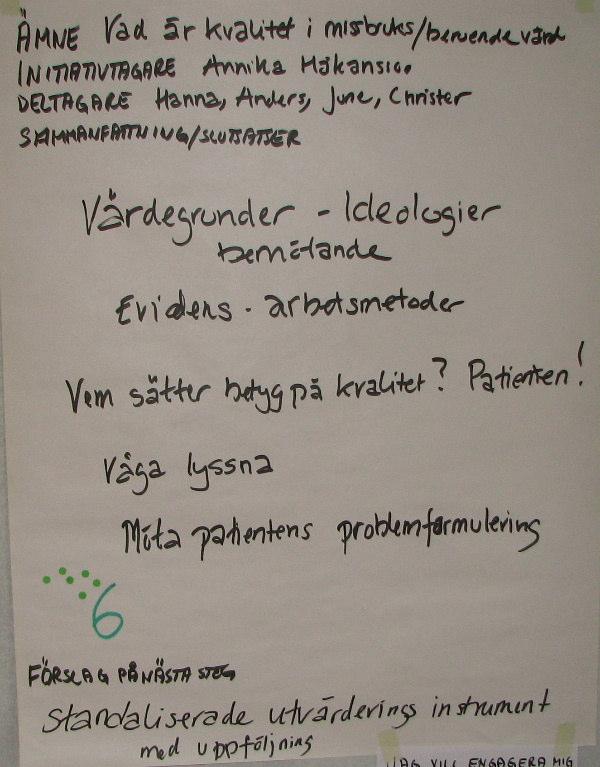 ÄMNE Vad är kvalitet i missbruks/beroendevård
INITIATIVTAGARE Annika
DELTAGARE Hanna, Anders, June, Christer
SAMMANFATTNING/SLUTSATSER
Värdegrunder - Ideologier
bemötande
Evidens - arbetsmetoder
Vem sätter betyg på kvalitet? Patienten!
Våga lyssna
Möta patientens problemformulering
6
FÖRSLAG PÅ NÄSTA STEG
Standaliserade utvärderings instrument
med uppföljning
JAG VILL ENGAGERA MIG